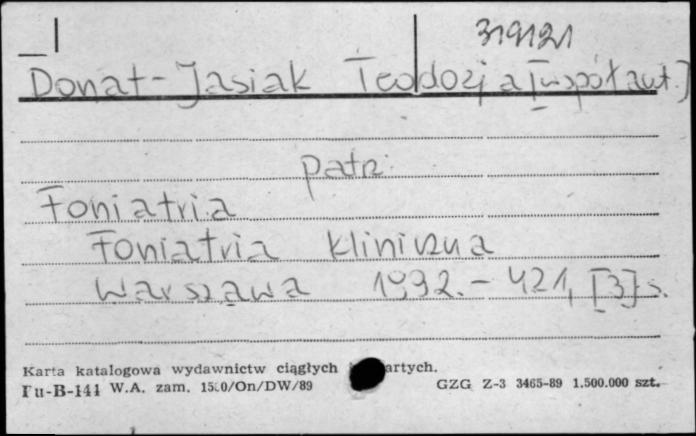 319121
Donat-Jasiak Teodozja [współaut.]
patrz:
Foniatria
Foniatria kliniczna
Warszawa 1992. - 421, [3] s.
Karta katalogowa wydawnictw ciągłych artych.
Pu-B-141 W.A. zam. 1500/On/DW/89 GZG Z-3 3465-89 1.500.000 szt.